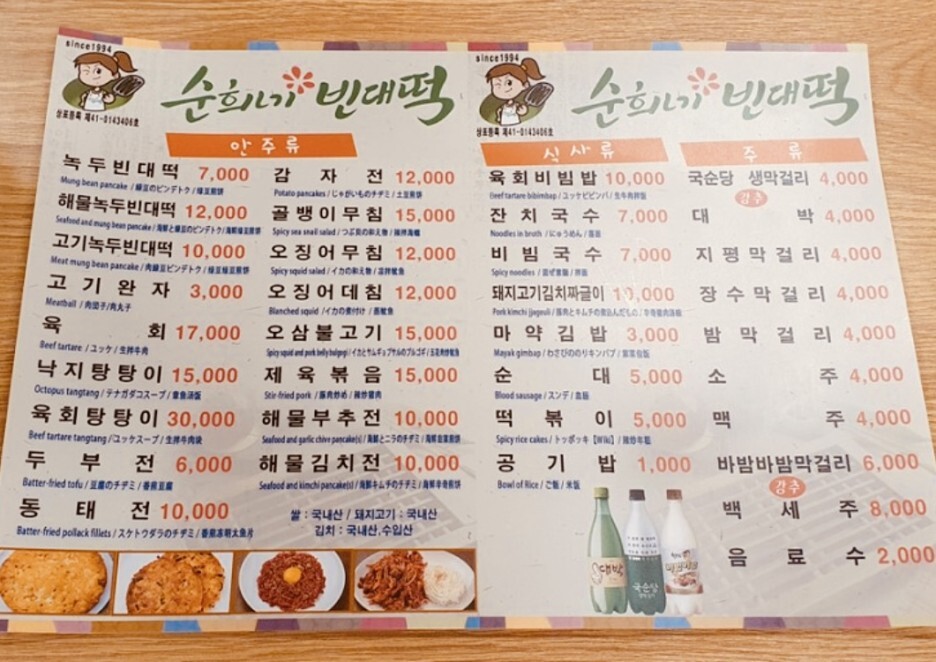 since1994
순희네 빈대떡
상표등록 제41-0143406호
안주류
녹두빈대떡 7,000
Mung bean pancake / 緑豆のピンデトク / 绿豆煎饼
해물녹두빈대떡 12,000
Seafood and mung bean pancake / 海鮮と緑豆のピンデトク / 海鲜绿豆煎饼
고기녹두빈대떡 10,000
Meat mung bean pancake / 肉緑豆ピンデトク /
고기완자 3,000
Meatball / 肉団子 / 肉丸子
육회 17,000
Beef tartare / ユッケ / 生拌牛肉
낙지탕탕이 15,000
Octopus tangtang / テナガダコスープ / 章鱼汤饭
육회탕탕이 30,000
Beef tartare tangtang / ユッケスープ / 生拌牛肉
두부전 6,000
Batter-fried tofu / 豆腐のチヂミ / 香煎豆腐
동태전 10,000
Batter-fried pollack fillets / スケトウダラのチヂミ / 香煎冻明太鱼片
감자전 12,000
Potato pancakes / じゃがいものチヂミ / 土豆煎饼
골뱅이무침 15,000
Spicy sea snail salad / つぶ貝の和え物 / 辣拌海螺
오징어무침 12,000
Spicy squid salad / イカの和え物 / 凉拌鱿鱼
오징어데침 12,000
Blanched squid / イカの煮付け /
오삼불고기 15,000
Spicy squid and pork belly bulgogi / イカとサムギョプサルのプルゴギ / 五花肉炒鱿鱼
제육볶음 15,000
Stir-fried pork / 豚肉炒め / 辣炒猪肉
해물부추전 10,000
Seafood and garlic chive pancake(s) / 海鮮とニラのチヂミ / 海鲜韭菜煎饼
해물김치전 10,000
Seafood and kimchi pancake(s) / 海鮮キムチのチヂミ / 海鲜辛奇煎饼
쌀 : 국내산 / 돼지고기 : 국내산
김치 : 국내산, 수입산
since1994
순희네 빈대떡
상표등록 제41-0143406호
식사류
육회비빔밥 10,000
Beef tartare bibimbap / ユッケビビンバ / 生牛肉拌饭
잔치국수 7,000
Noodles in broth / にゅうめん / 喜面
비빔국수 7,000
Spicy noodles / 混ぜ素麺 / 拌面
돼지고기김치짜글이 10,000
Pork kimchi jjageuli / 豚肉とキムチの煮込んだもの /
마약김밥 3,000
Mayak gimbap / わさびののりキンパプ / 紫菜包饭
순대 5,000
Blood sausage / スンデ / 血肠
떡볶이 5,000
Spicy rice cakes / トッポッキ【Wiki】 / 辣炒年糕
공기밥 1,000
Bowl of Rice / ご飯 / 米饭
주류
국순당 생막걸리 4,000
강추
대박 4,000
지평막걸리 4,000
장수막걸리 4,000
밤막걸리 4,000
소주 4,000
맥주 4,000
바밤바밤막걸리 6,000
강추
백세주 8,000
음료수 2,000
대박
국순당